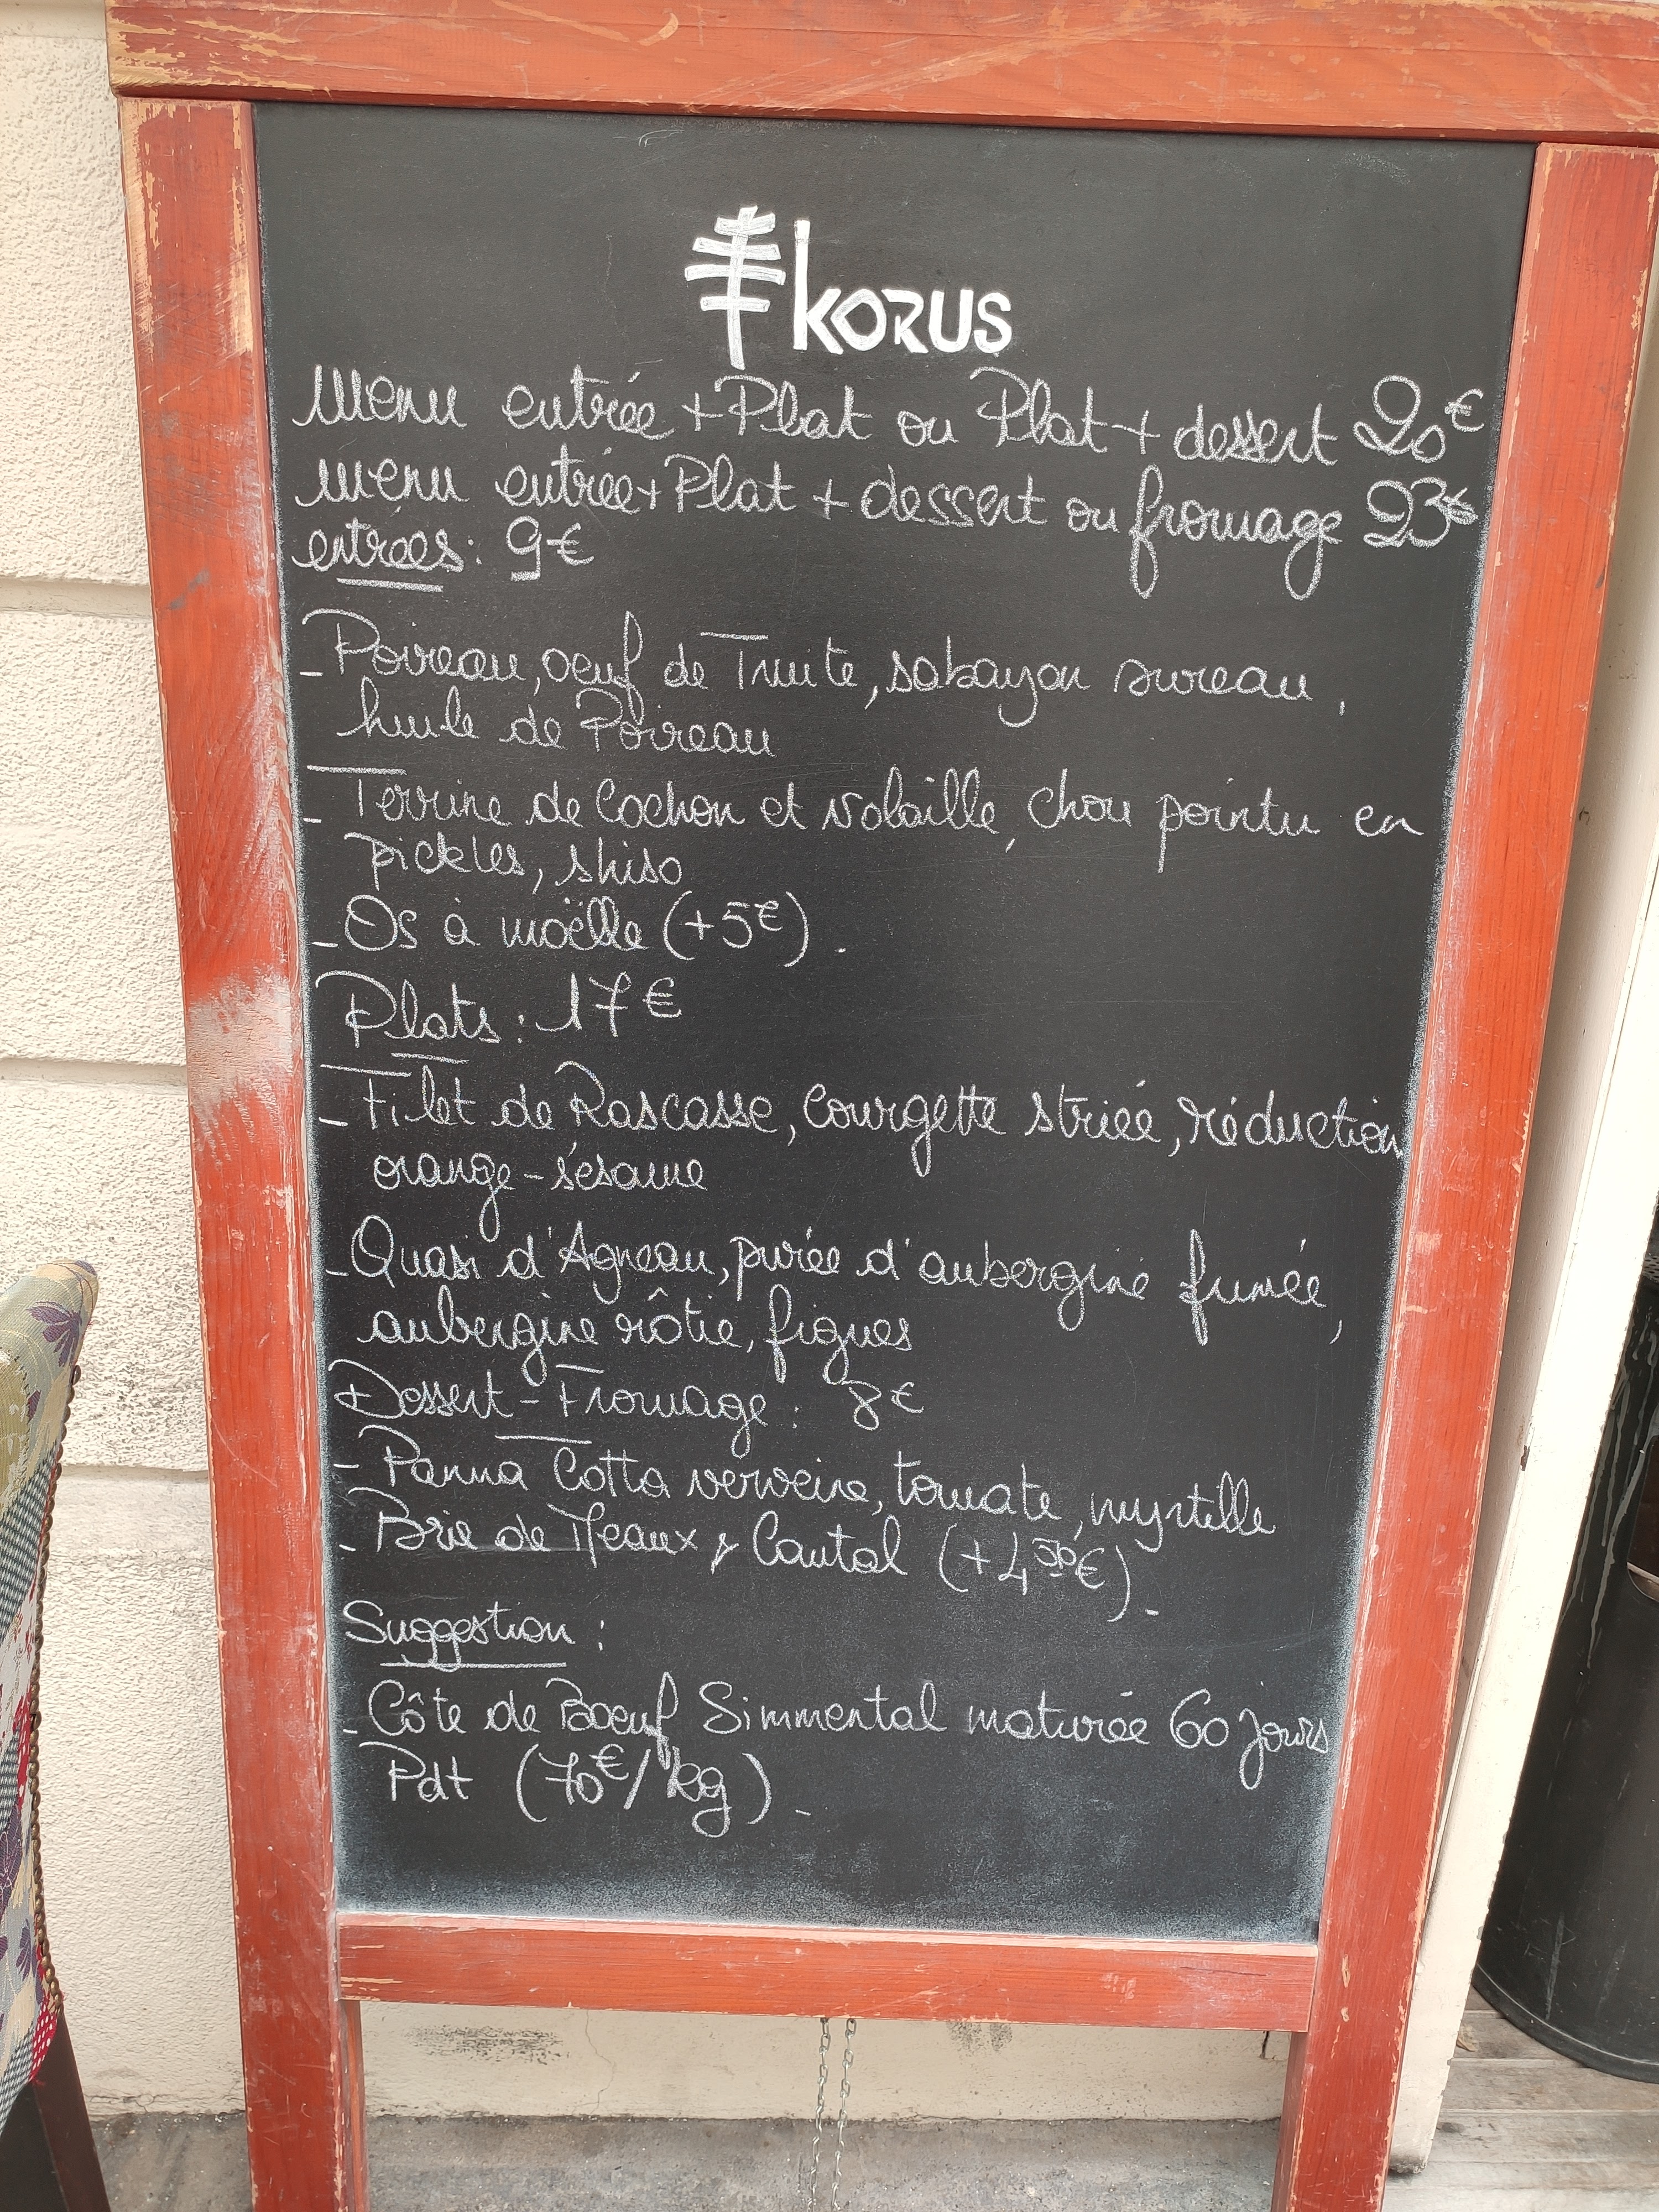 KORUS
Menu entrée + Plat ou Plat + dessert 20€
Menu entrée + Plat + dessert ou fromage 23€
entrées : 9€
- Poireau, oeuf de Truite, sabayon sureau,
huile de Poireau
- Terrine de Cochon et volaille, chou pointu en
pickles, shiso
- Os à moëlle (+5€).
Plats : 17€
- Filet de Rascasse, Courgette striée, réduction
orange-sésame
- Quasi d'Agneau, purée d'aubergine fumée,
aubergine rôtie, figues
Dessert - Fromage : 8€
- Panna Cotta verveine, tomate, myrtille
- Brie de Meaux & Cantal (+4,50€).
Suggestion :
- Côte de Boeuf Simmental maturée 60 jours
Pdt (70€/kg).